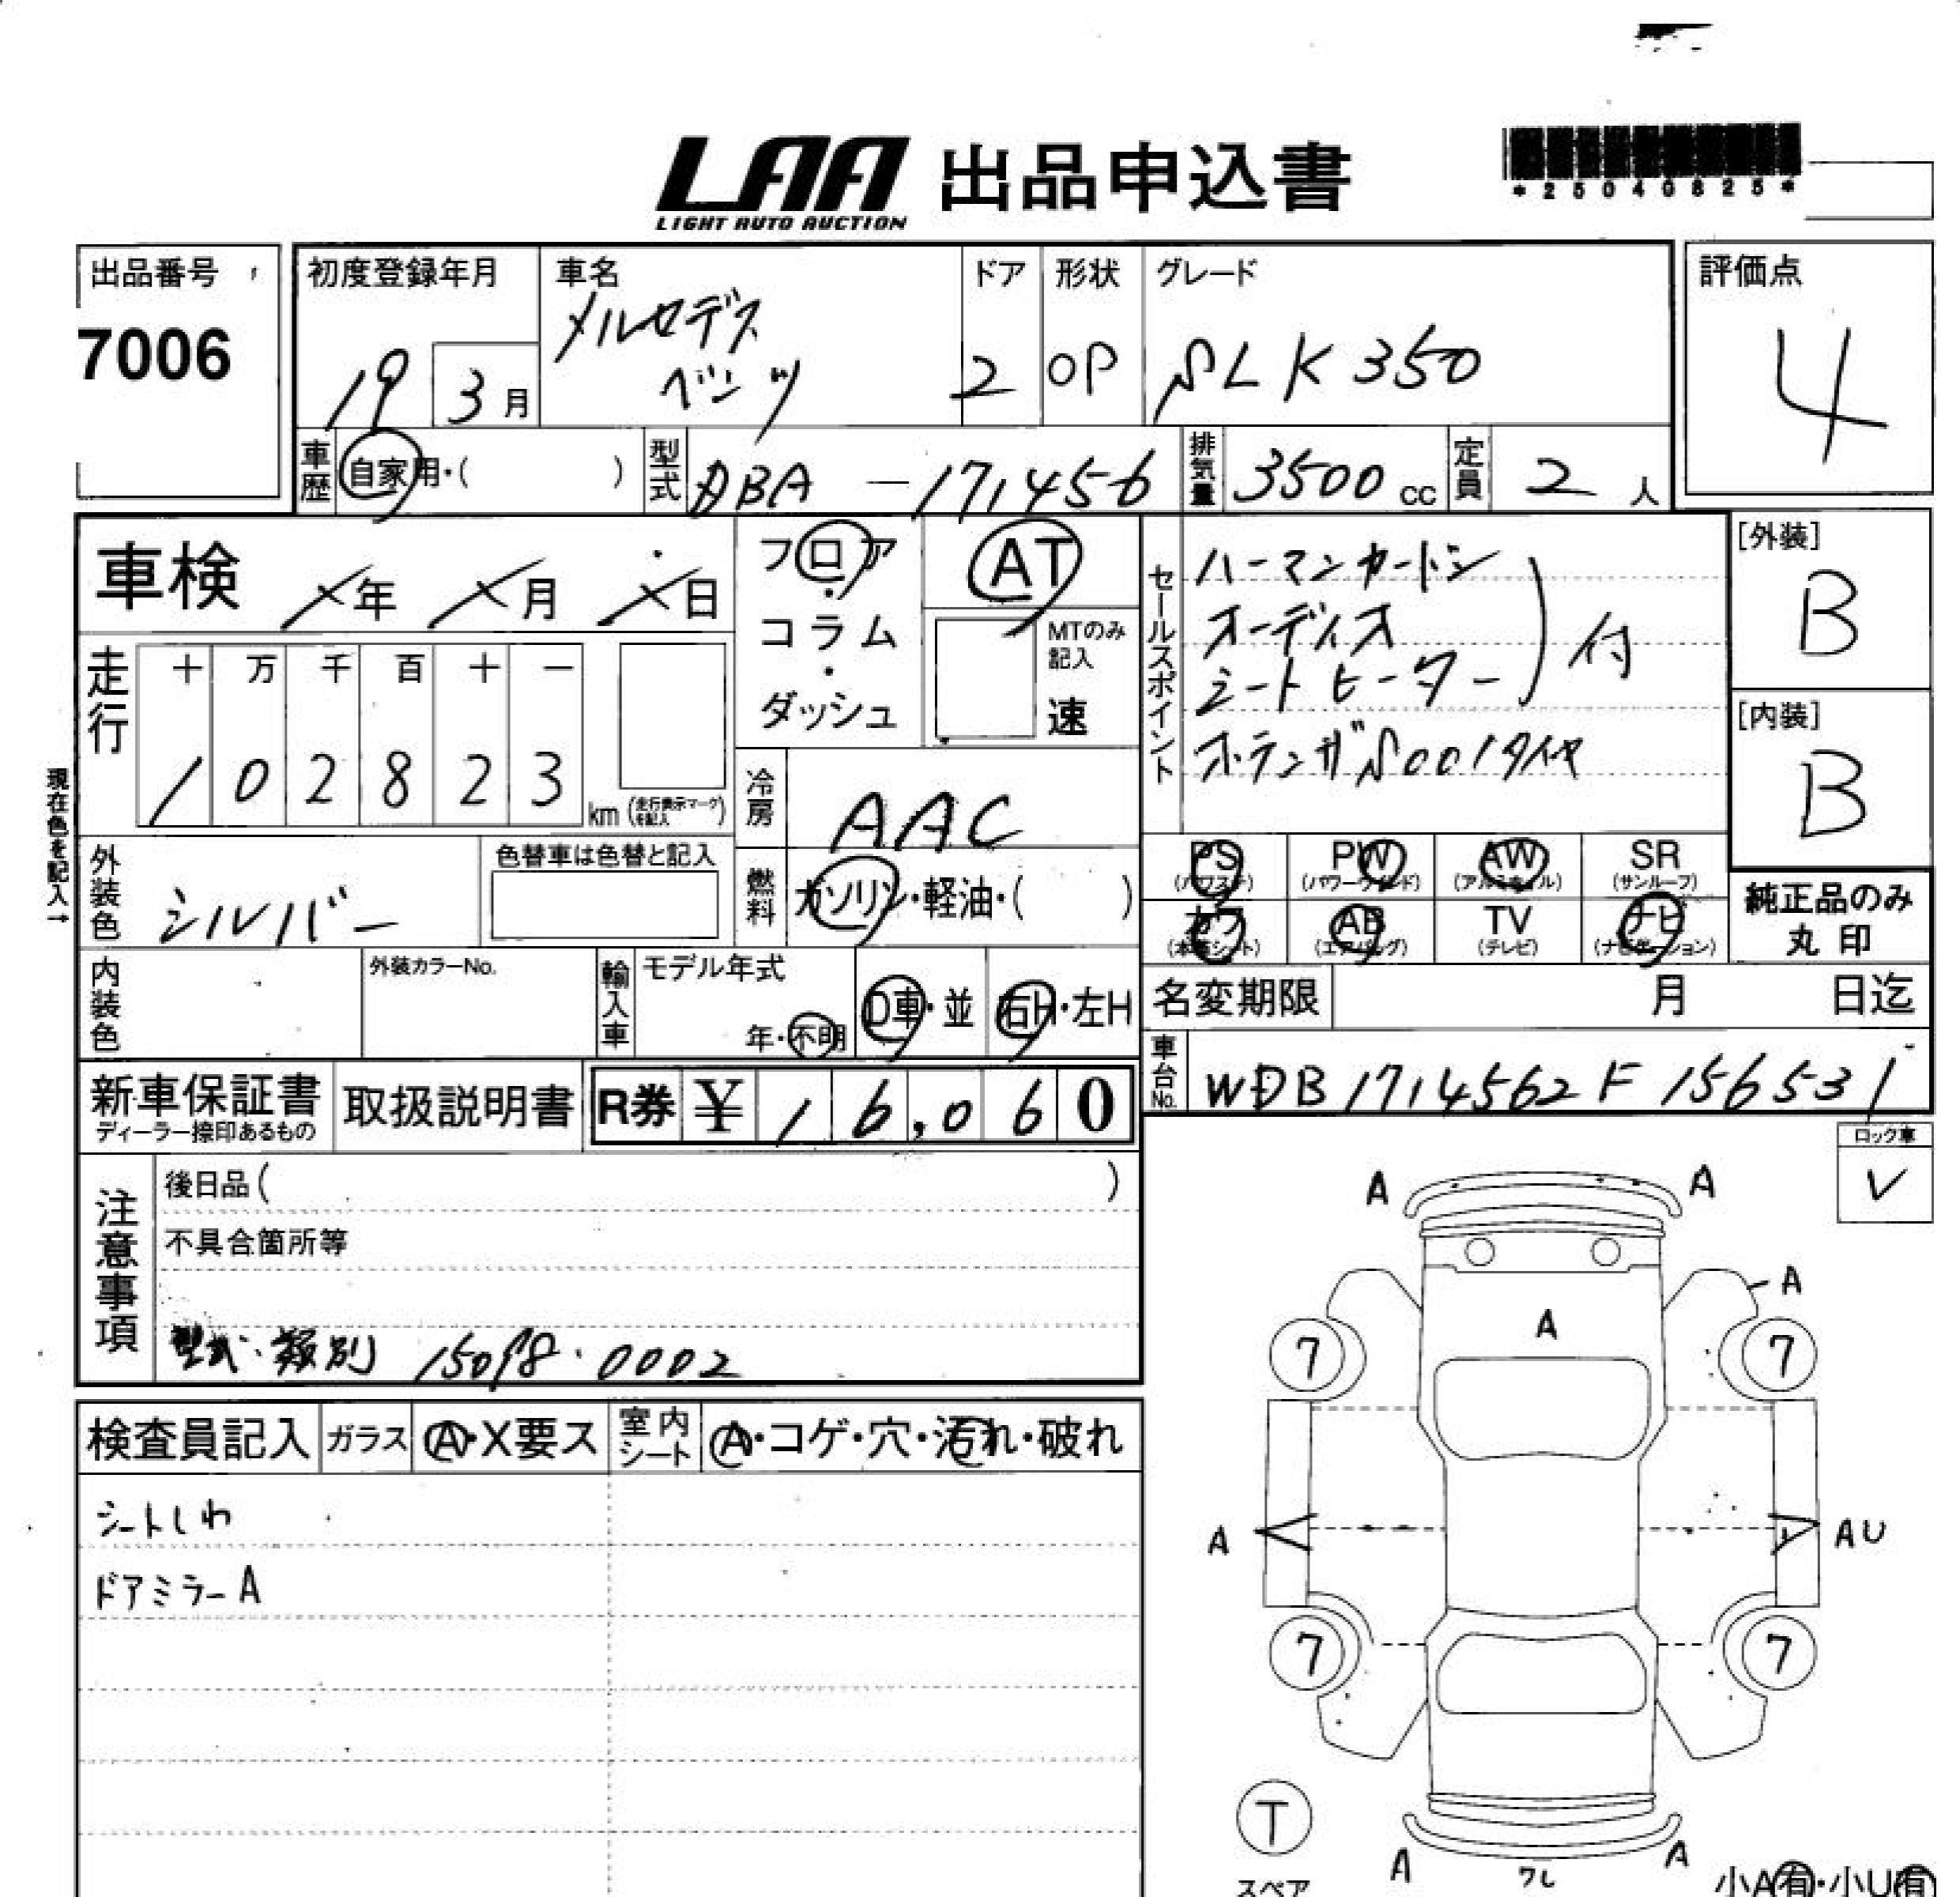 LAA 出品申込書
LIGHT AUTO AUCTION
*25040825*
出品番号
7006
初度登録年月
19 3月
車名
メルセデス
ベンツ
ドア
2
形状
OP
グレード
SLK350
評価点
4
車歴 自家用・( )
型式 DBA-171456
排気量 3500cc
定員 2人
車検 ×年 ×月 ×日
フロア
・
コラム
・
ダッシュ
AT
MTのみ
記入
速
セールスポイント
ハーマンカードン
オーディオ
シートヒーター
付
ポテンザS001タイヤ
[外装]
B
[内装]
B
走行
十 万 千 百 十 一
1 0 2 8 2 3
km
(走行表示マーク
を記入)
冷房 AAC
現在色を記入→
外装色 シルバー
色替車は色替と記入
燃料 ガソリン・軽油・( )
PS PW AW SR
(パワステ) (パワーウインド) (アルミホイル) (サンルーフ)
カワ AB TV ナビ
(本革シート) (エアバッグ) (テレビ) (ナビゲーション)
純正品のみ
丸印
内装色
外装カラーNo.
輸入車
モデル年式
年・不明
D車・並
右H・左H
名変期限 月 日迄
車台No. WDB1714562F156531
新車保証書
ディーラー捺印あるもの
取扱説明書
R券 ¥16,060
ロック車
✓
注意事項
後日品( )
不具合箇所等
型式・類別 15098・0002
検査員記入
ガラス A・X要ス
室内シート A・コゲ・穴・汚れ・破れ
シートしわ
ドアミラーA
A A
A
A
7 7
A AU
7 7
T
スペア
A ワレ A
小A有・小U有